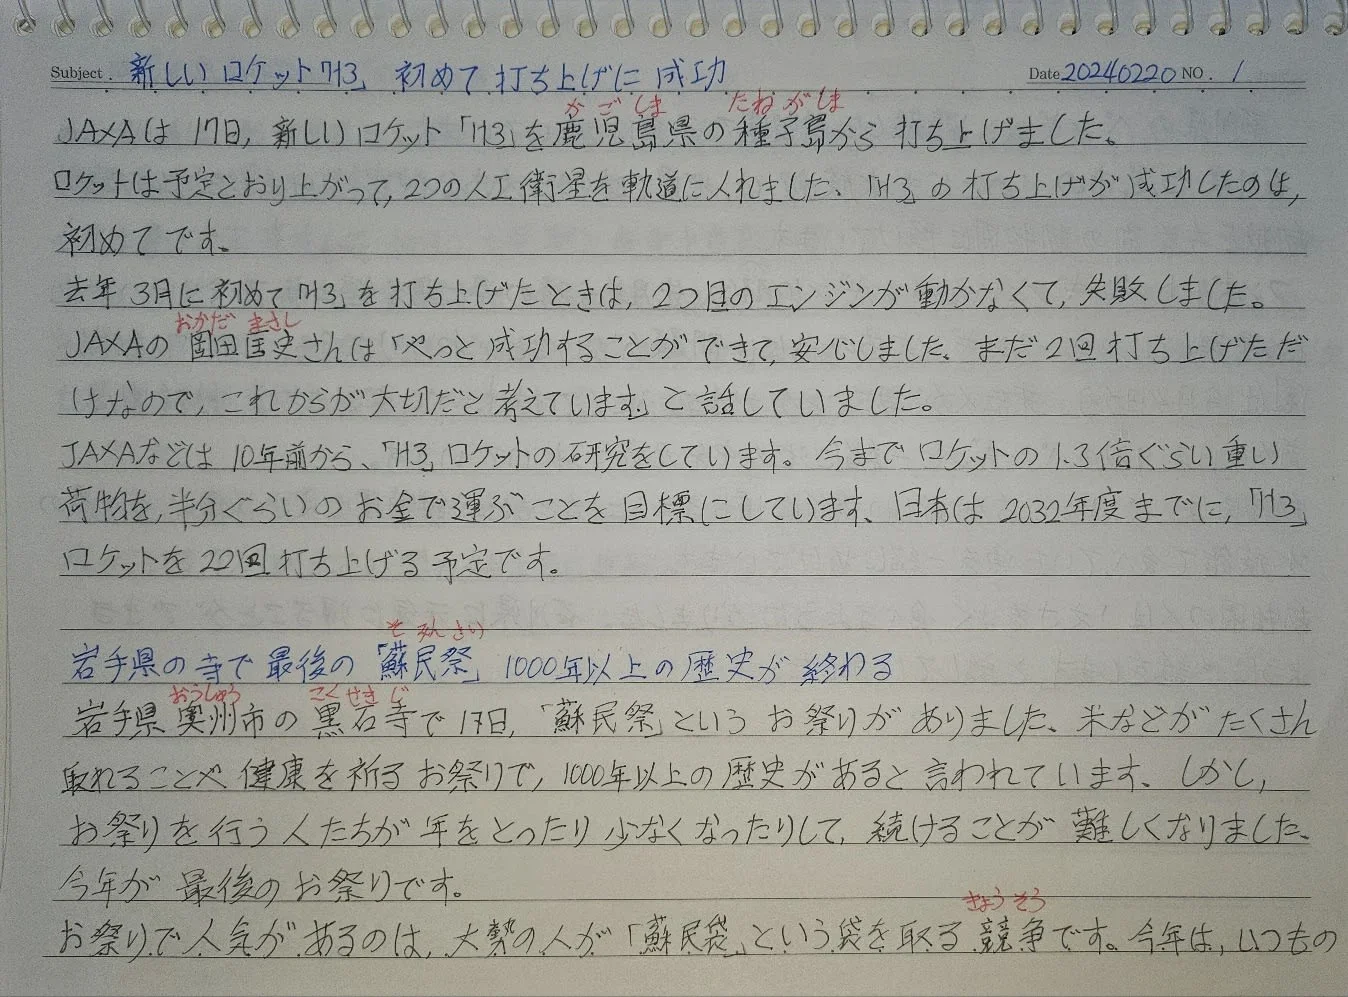 Subject. 新しい ロケット「H3」 初めて 打ち上げに 成功
Date 20240220 NO. 1
かごしま たねがしま
JAXAは 17日, 新しい ロケット「H3」を 鹿児島県の 種子島から 打ち上げました。
ロケットは 予定とおり上がって, 2つの人工衛星を 軌道に入れました、「H3」の 打ち上げが 成功したのは,
初めてです。
去年 3月に 初めて「H3」を 打ち上げたときは, 2つ目の エンジンが 動かなくて, 失敗しました。
おかだ まさし
JAXAの 岡田匡史さんは「やっと 成功することができて, 安心しました、まだ 2回 打ち上げただ
けなので, これからが 大切だと 考えています」と 話していました。
JAXAなどは 10年前から、「H3」ロケットの 研究をしています。今まで ロケットの 1.3倍ぐらい 重い
荷物を, 半分ぐらいの お金で 運ぶことを 目標にしています、日本は 2032年度までに,「H3」
ロケットを 22回 打ち上げる 予定です。
そみんさい
岩手県の 寺で 最後の「蘇民祭」 1000年以上の 歴史が 終わる
おうしゅう こくせきじ
岩手県 奥州市の 黒石寺で 17日,「蘇民祭」という お祭りが ありました、米などが たくさん
取れることや 健康を 祈る お祭りで, 1000年以上の 歴史があると 言われています、しかし,
お祭りを 行う 人たちが 年をとったり 少なくなったりして, 続けることが 難しくなりました、
今年が 最後の お祭りです。
きょうそう
お祭りで 人気が あるのは, 大勢の 人が「蘇民袋」という袋を 取る 競争です。今年は, いつもの